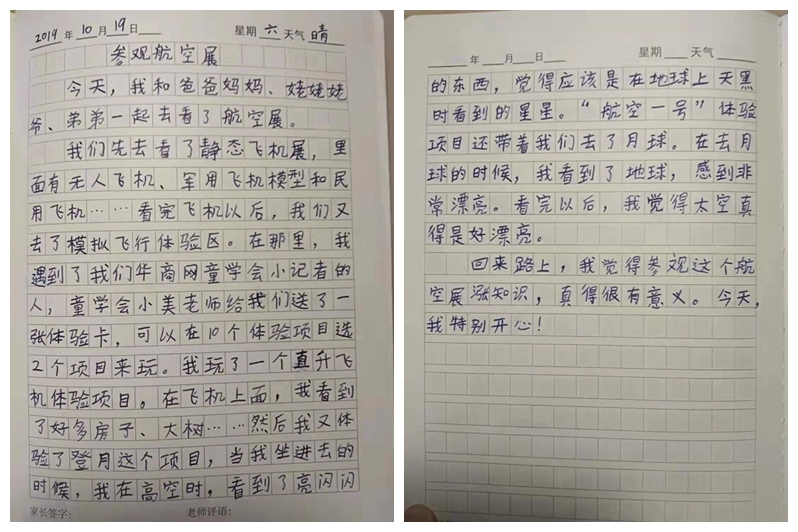 2019年10月19日 星期六天气晴
参观航空展
今天，我和爸爸妈妈、姥姥姥
爷、弟弟一起去看了航空展。
我们先去看了静态飞机展，里
面有无人飞机、军用飞机模型和民
用飞机……看完飞机以后，我们又
去了模拟飞行体验区。在那里，我
遇到了我们华商网童学会小记者的
人，童学会小美老师给我们送了一
张体验卡，可以在10个体验项目选
2个项目来玩。我玩了一个直升飞
机体验项目。在飞机上面，我看到
了好多房子、大树……然后我又体
验了登月这个项目，当我坐进去的
时候，我在高空时，看到了亮闪闪
家长签字： 老师评语：
年 月 日 星期 天气
的东西，觉得应该是在地球上天黑
时看到的星星。“航空一号”体验
项目还带着我们去了月球。在去月
球的时候，我看到了地球，感到非
常漂亮。看完以后，我觉得太空真
得是好漂亮。
回来路上，我觉得参观这个航
空展涨知识，真得很有意义。今天，
我特别开心！